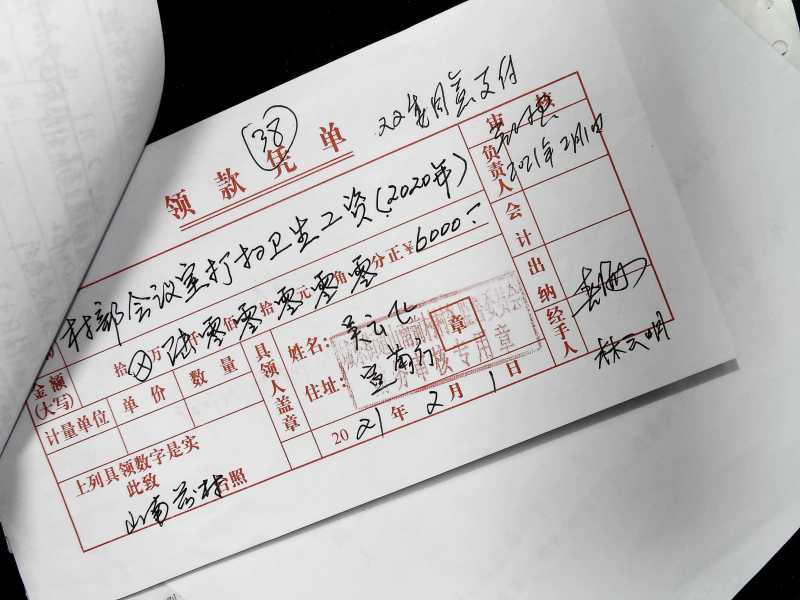 38
领款凭单
支付
村部会议室打扫卫生工资(2020年)
金额(大写) 拾⊗万陆仟零佰零拾零元零角零分正¥6000.-
计量单位 单价 数量
具领人盖章
姓名:吴云化
住址:
2021年2月1日
上列具领数字是实
此致
台照
审核
负责人
2021年2月1日
会计
出纳
经手人
林云明
章
审核专用章